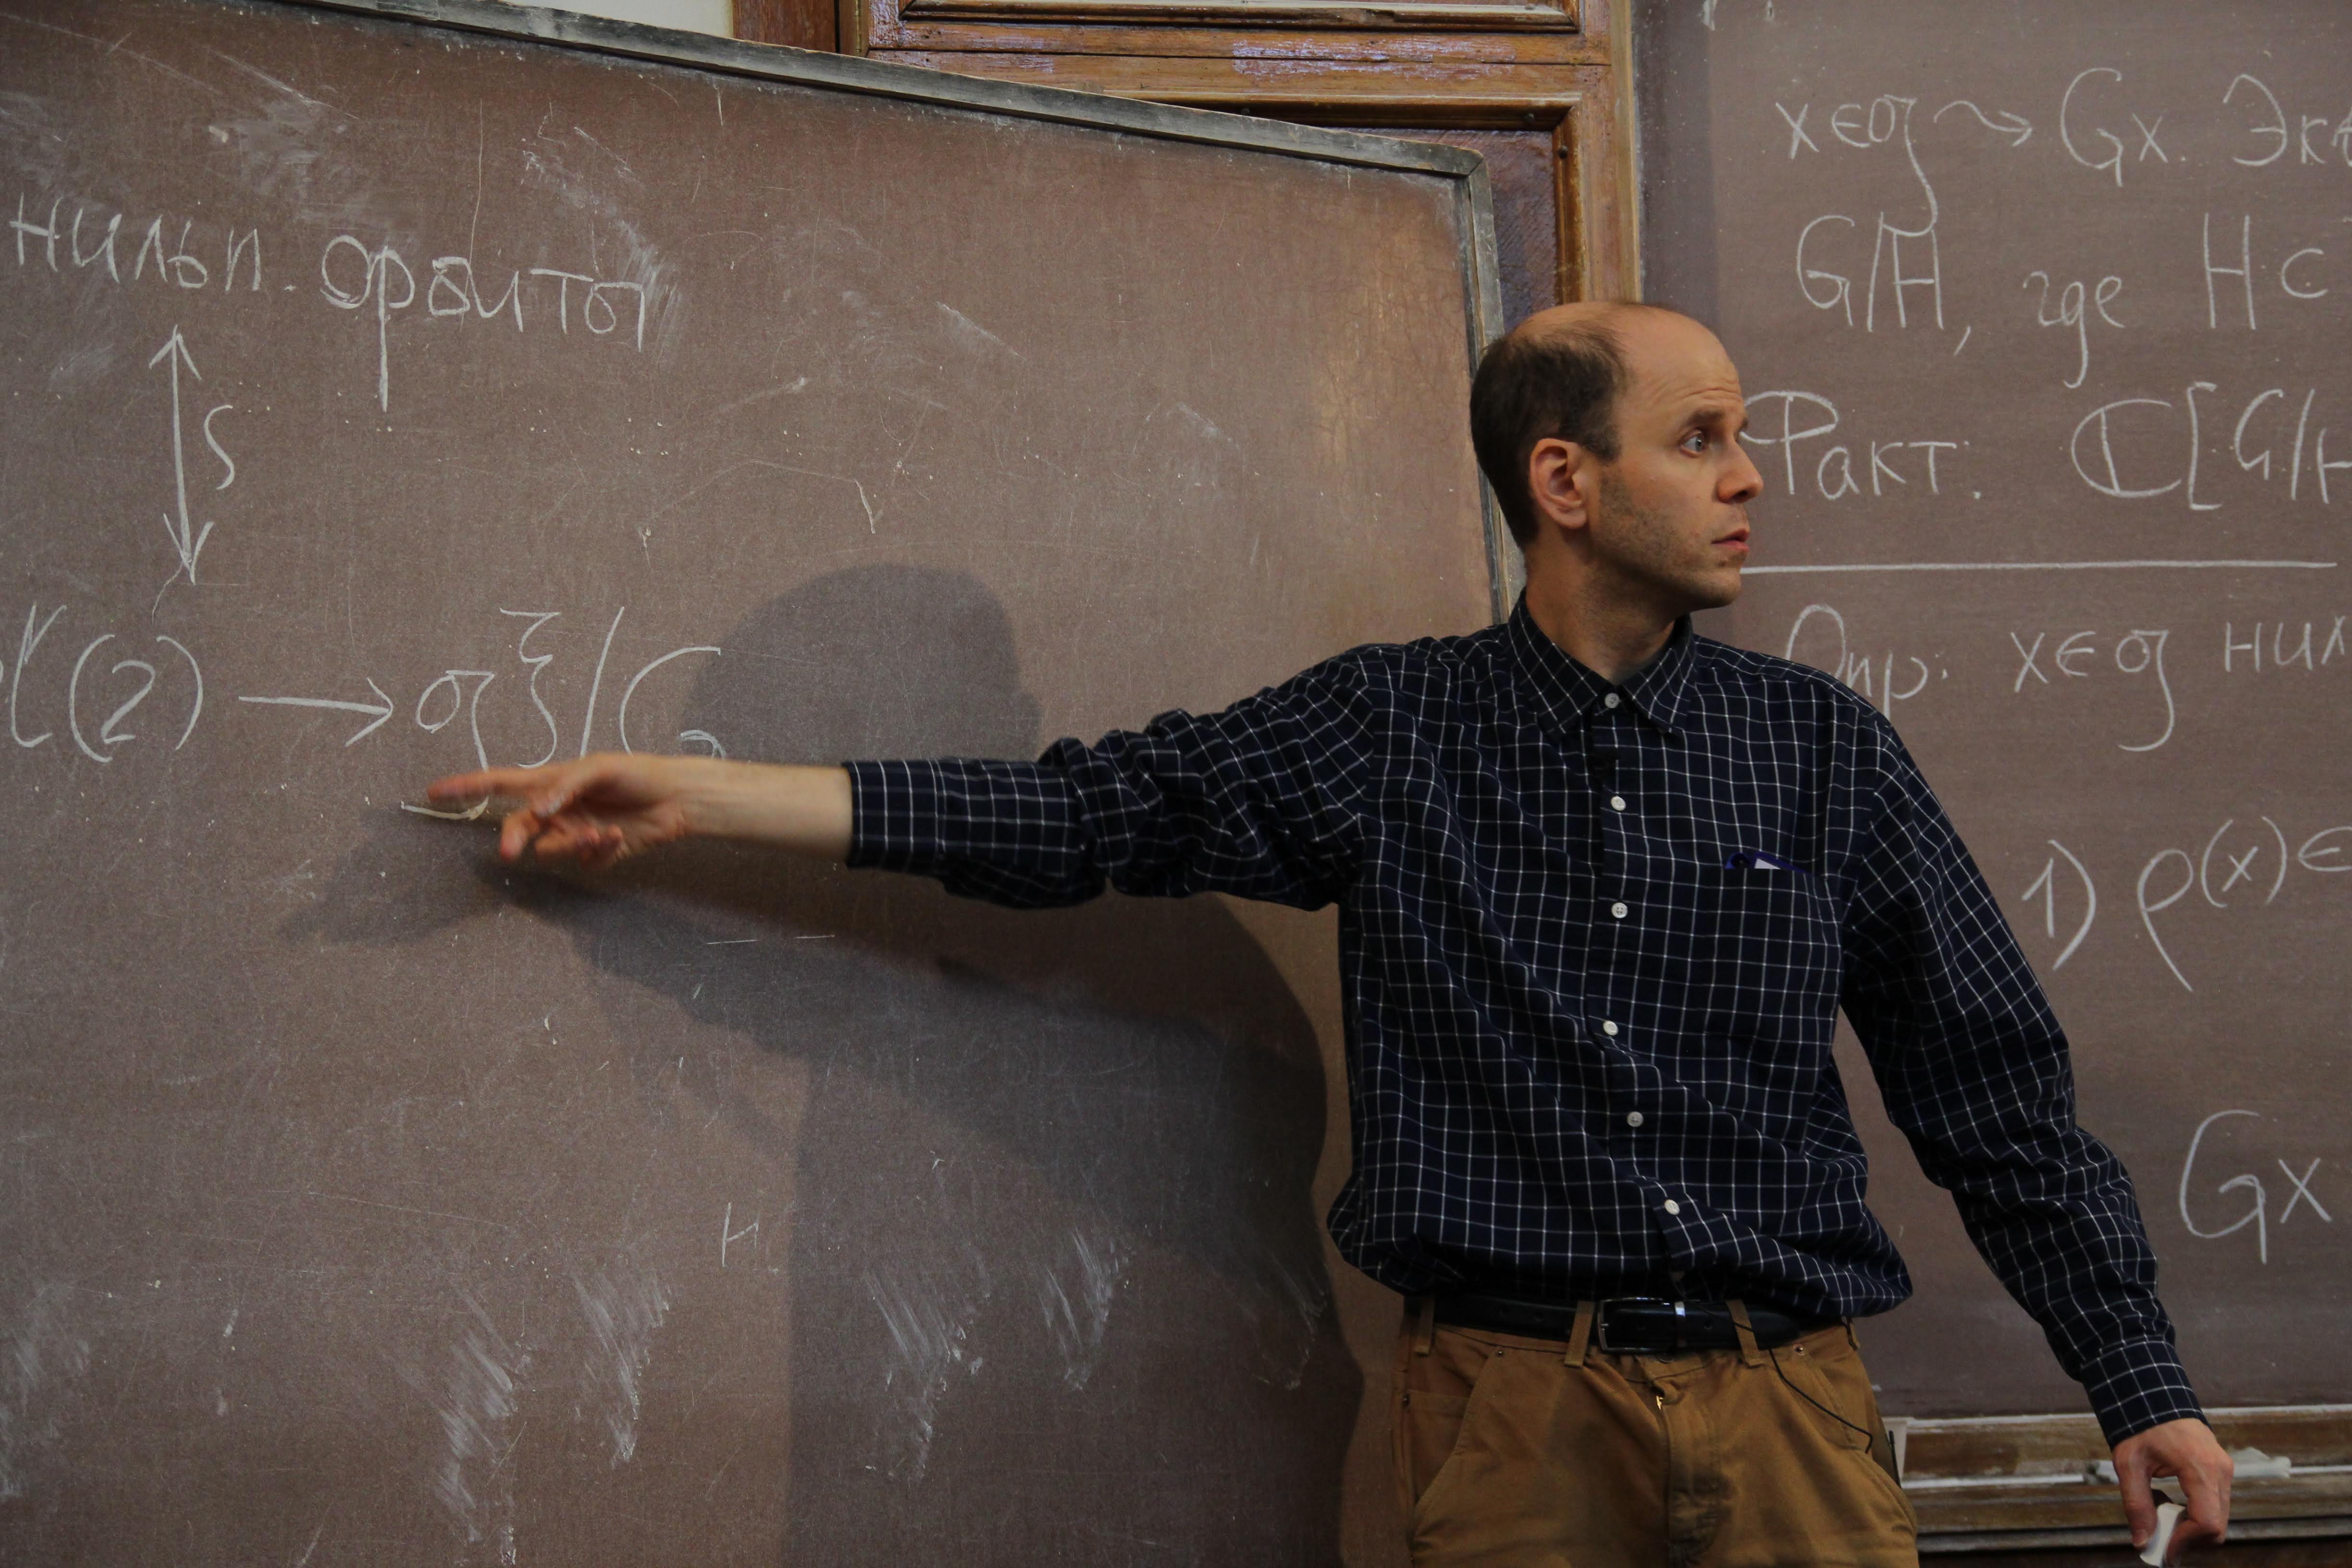 нильп. орбиты
↕ S
l(2) → g}/G
x∈g ⇝ Gx. Экв
G/H, где H ⊂
Факт: ℂ[G/H
Опр: x∈g нил
1) ρ(x)∈
Gx